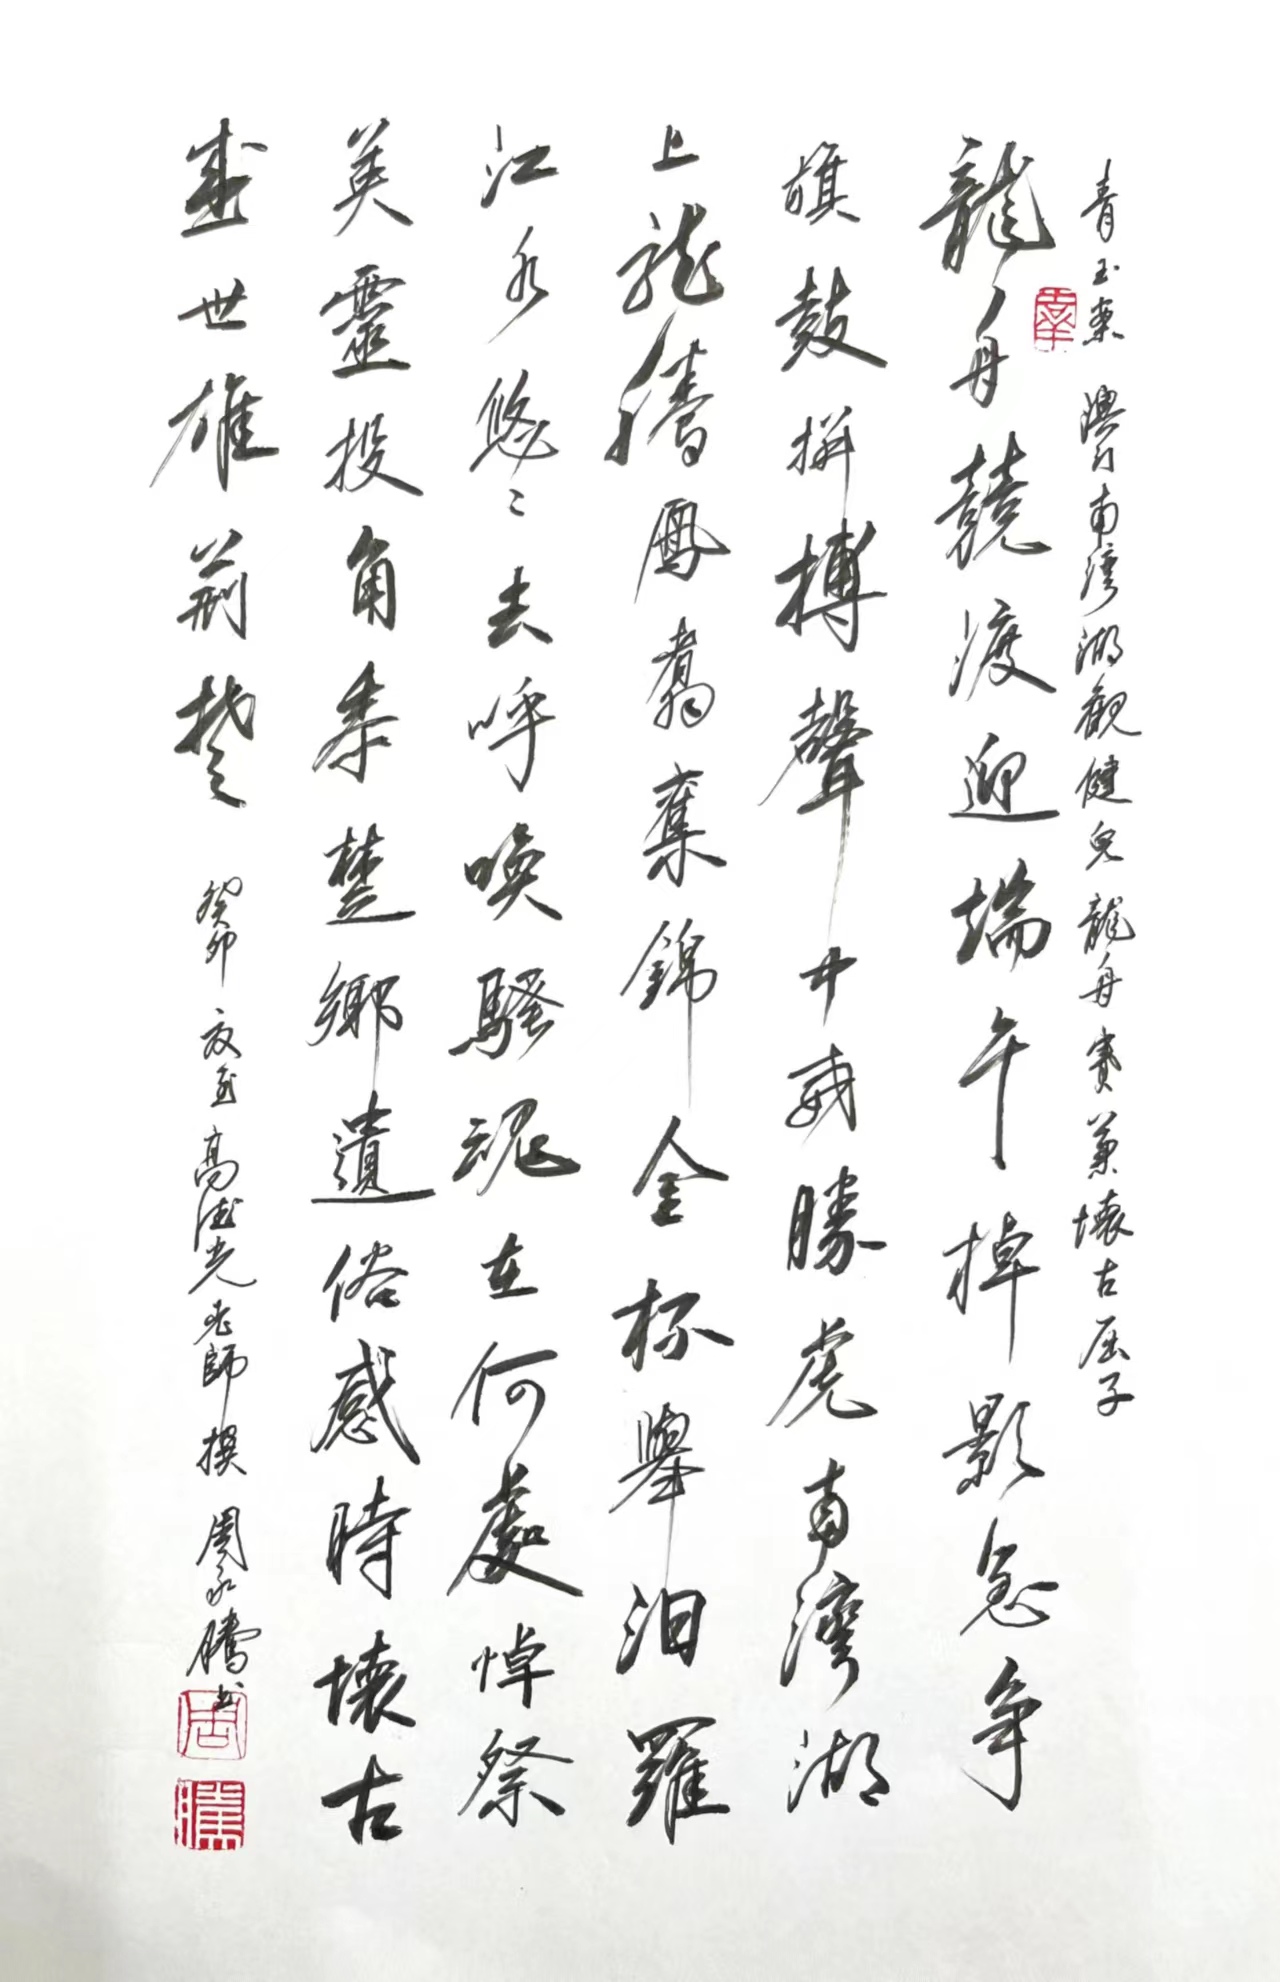 青玉案 澳门南灣湖觀健兒龍舟賽兼懷古屈子
龍舟競渡迎端午棹影急爭
旗鼓拼搏聲中威勝虎南灣湖
上龍騰鳳翥奪錦金杯舉汨羅
江水悠〻去呼喚騷魂在何處悼祭
英靈投角黍楚鄉遺俗感時懷古
盛世雄荊楚
癸卯夏至高德光老師撰 周永騰書
周
騰